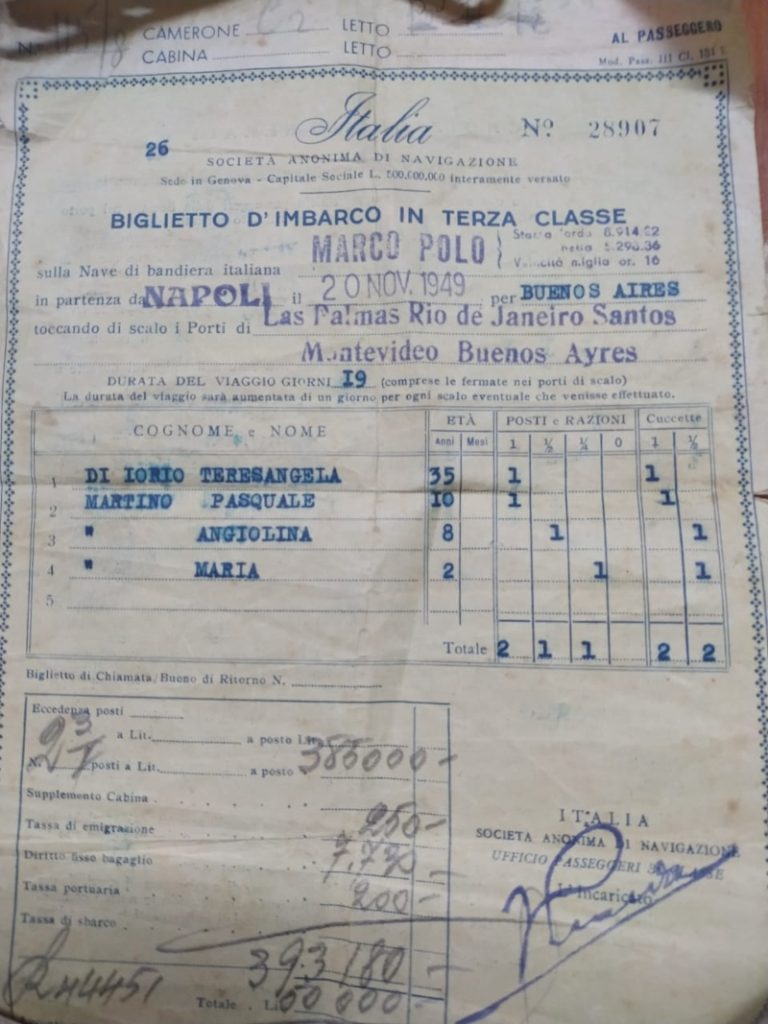 CAMERONE LETTO
CABINA LETTO
AL PASSEGGERO
Mod. Pass. III Cl.
Italia
Nº 28907
26
SOCIETÀ ANONIMA DI NAVIGAZIONE
Sede in Genova - Capitale Sociale L. 500.000.000 interamente versato
BIGLIETTO D'IMBARCO IN TERZA CLASSE
sulla Nave di bandiera italiana MARCO POLO
Stazza lorda 8.914.22
netta 5.290.36
Velocità miglia or. 16
in partenza da NAPOLI il 20 NOV. 1949 per BUENOS AIRES
toccando di scalo i Porti di Las Palmas Rio de Janeiro Santos
Montevideo Buenos Ayres
DURATA DEL VIAGGIO GIORNI I9 (comprese le fermate nei porti di scalo)
La durata del viaggio sarà aumentata di un giorno per ogni scalo eventuale che venisse effettuato.
COGNOME e NOME ETÀ POSTI e RAZIONI Cuccette
Anni Mesi 1 ½ ¼ 0 1 ½
1 DI IORIO TERESANGELA 35 1 1
2 MARTINO PASQUALE I0 1 1
3 " ANGIOLINA 8 1 1
4 " MARIA 2 1 1
5
Totale 2 1 1 2 2
Biglietto di Chiamata/Buono di Ritorno N.
Eccedenza posti
a Lit. a posto Lit.
N. posti a Lit. a posto 385000-
Supplemento Cabina
Tassa di emigrazione 250-
Diritto fisso bagaglio 7,730-
Tassa portuaria 200-
Tassa di sbarco
393180-
Totale Lit.
ITALIA
SOCIETA ANONIMA DI NAVIGAZIONE
UFFICIO PASSEGGERI
L'Incaricato